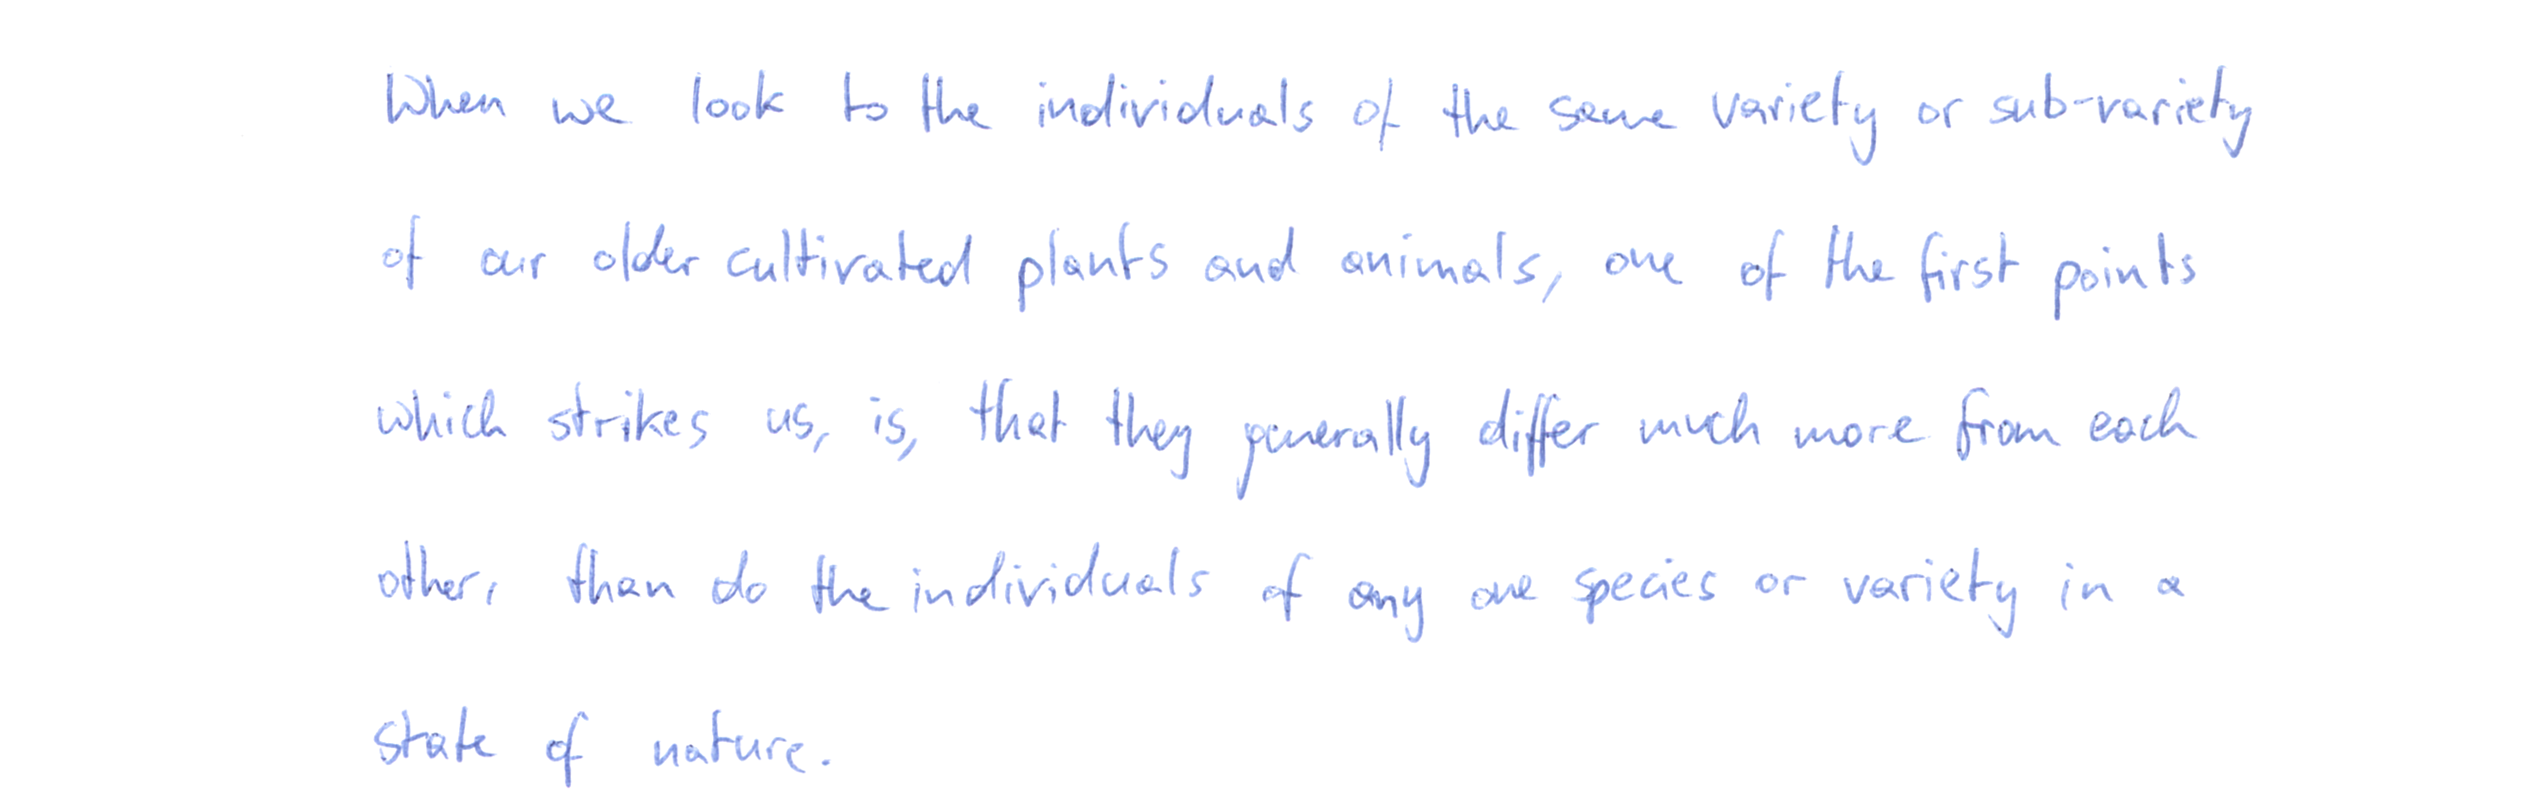 When we look to the individuals of the same variety or sub-variety
of our older cultivated plants and animals, one of the first points
which strikes us, is, that they generally differ much more from each
other, than do the individuals of any one species or variety in a
state of nature.